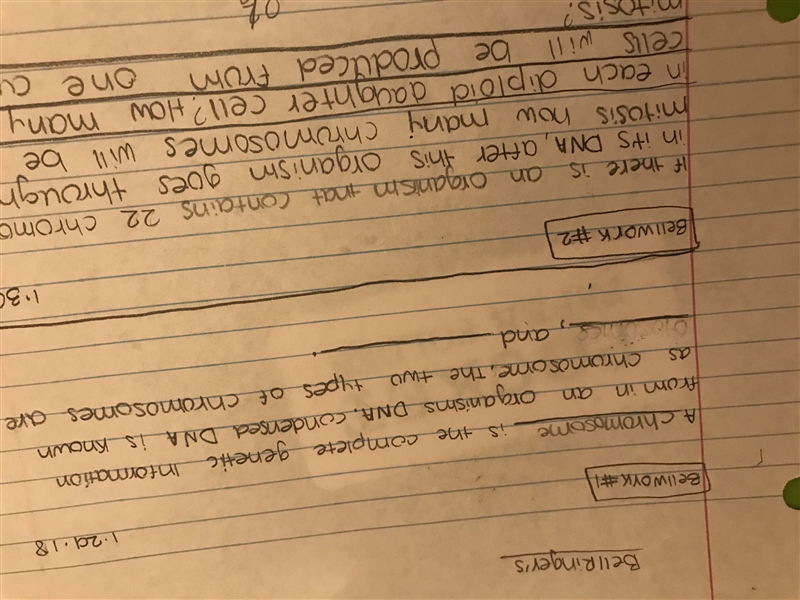 BellRinger's
1.29.18
Bellwork #1
A chromosome is the complete genetic information
from in an organisms DNA. condensed DNA is known
as chromosome. The two types of chromosomes are
, and .
1.30
Bellwork #2
If there is an organism that contains 22 chromo
in its DNA, after this organism goes through
mitosis how many chromosomes will be
in each diploid daughter cell? How many
cells will be produced from one cu
mitosis?